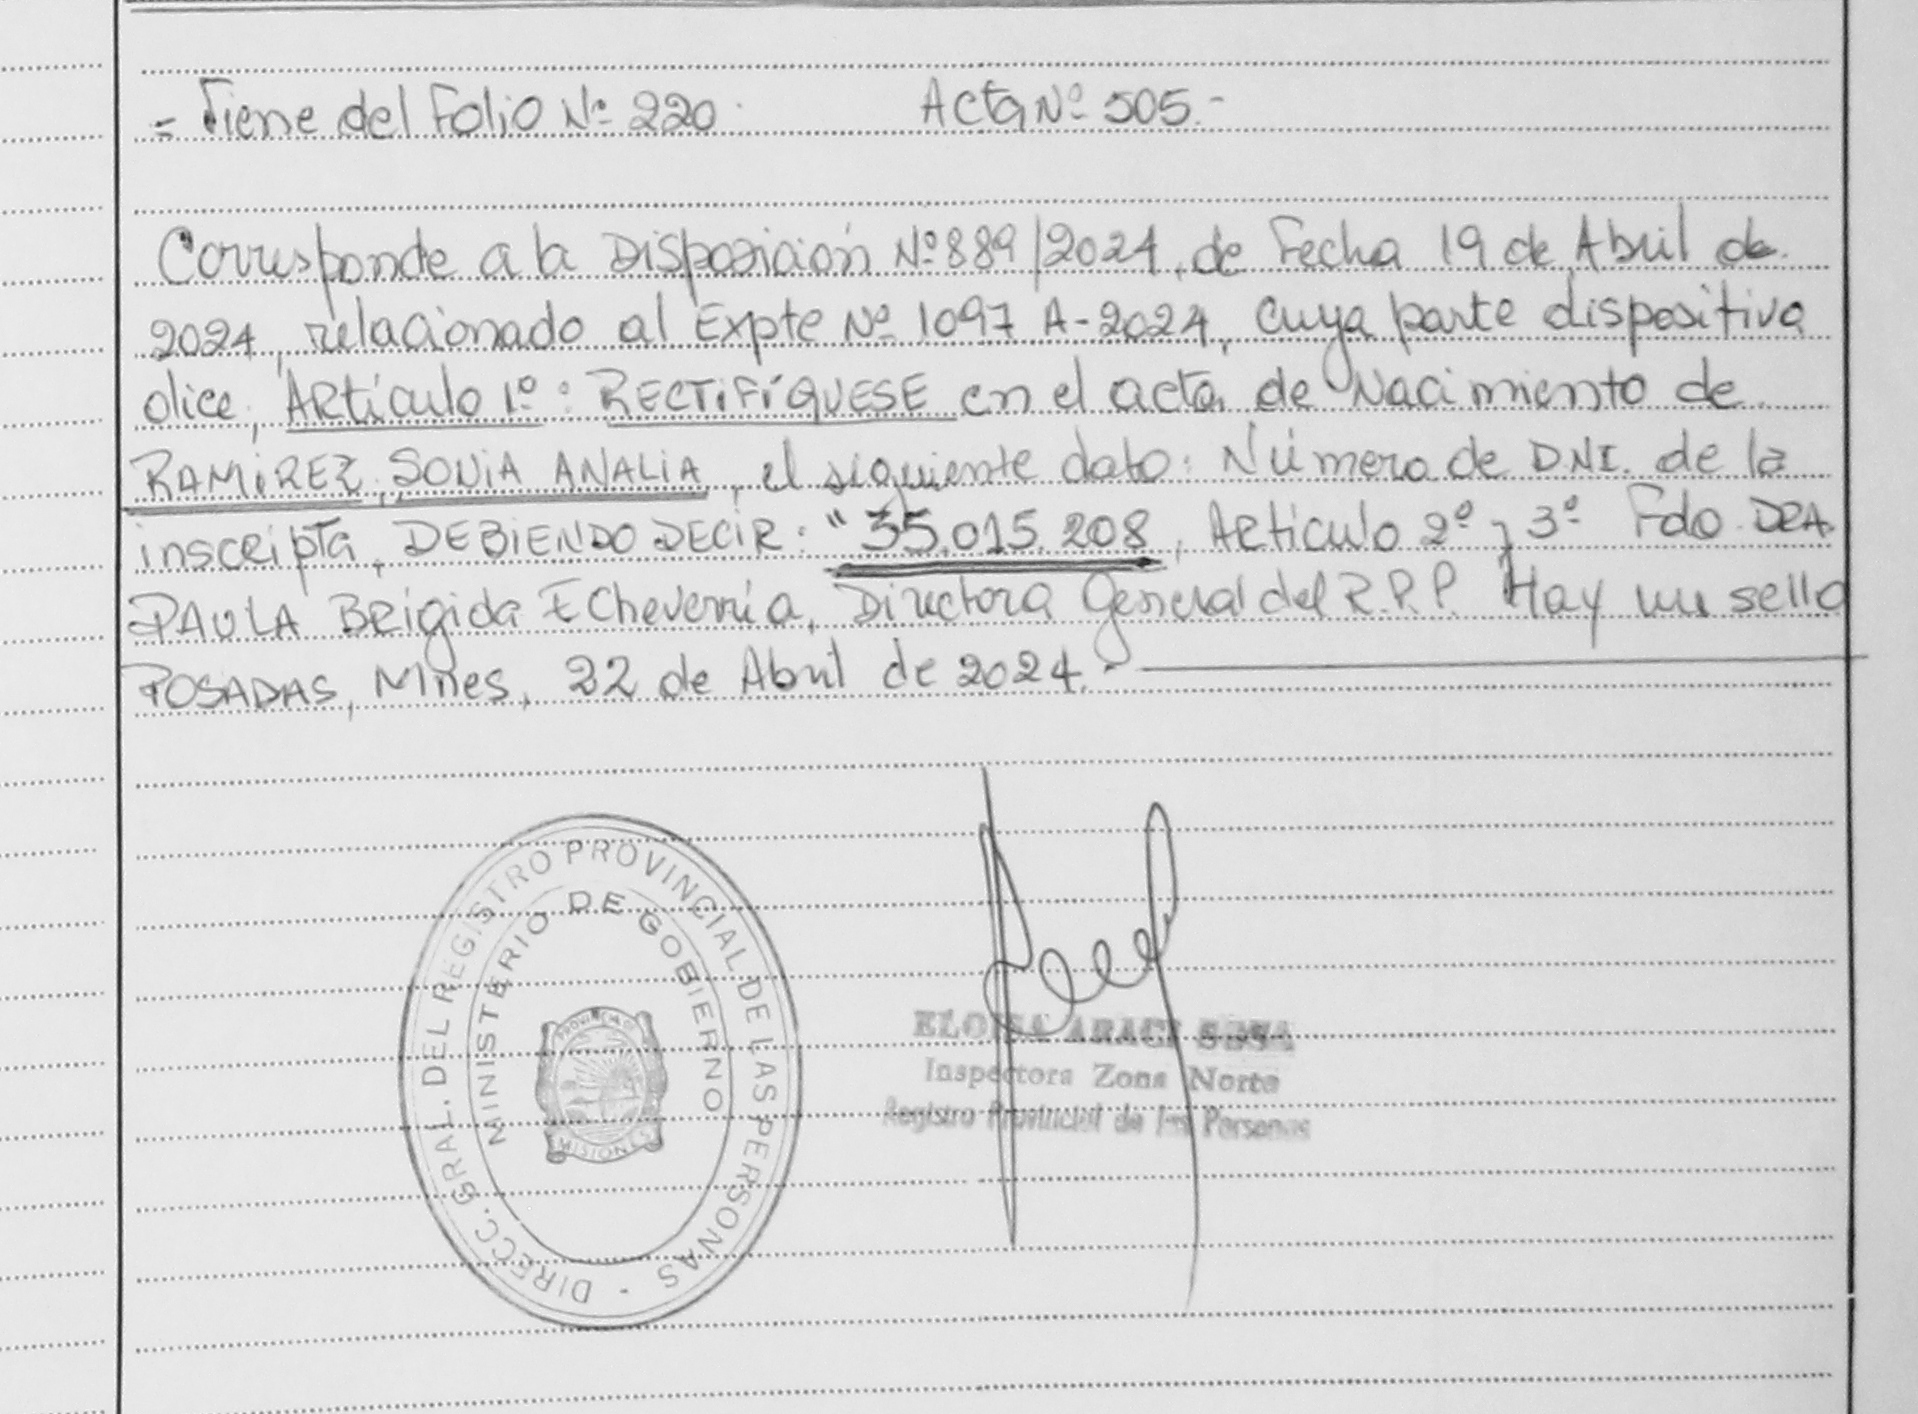 = Viene del Folio Nº 220. Acta Nº 505.-
Corresponde a la Disposición Nº 889/2024, de Fecha 19 de Abril de
2024, relacionado al Expte Nº 1097 A-2024, cuya parte dispositiva
dice, Artículo 1º: RECTIFÍQUESE en el acta de Nacimiento de
RAMIREZ, SONIA ANALIA, el siguiente dato: Número de DNI. de la
inscripta, DEBIENDO DECIR: "35.015.208, Artículo 2º y 3º Fdo. DRA.
PAULA Brigida Echeverría, Directora General del R.P.P. Hay un sello
POSADAS, Mnes, 22 de Abril de 2024.-
DIRECC. GRAL. DEL REGISTRO PROVINCIAL DE LAS PERSONAS -
MINISTERIO DE GOBIERNO
PROVINCIA DE
MISIONES
ELOISA ARACI SOSA
Inspectora Zona Norte
Registro Provincial de las Personas